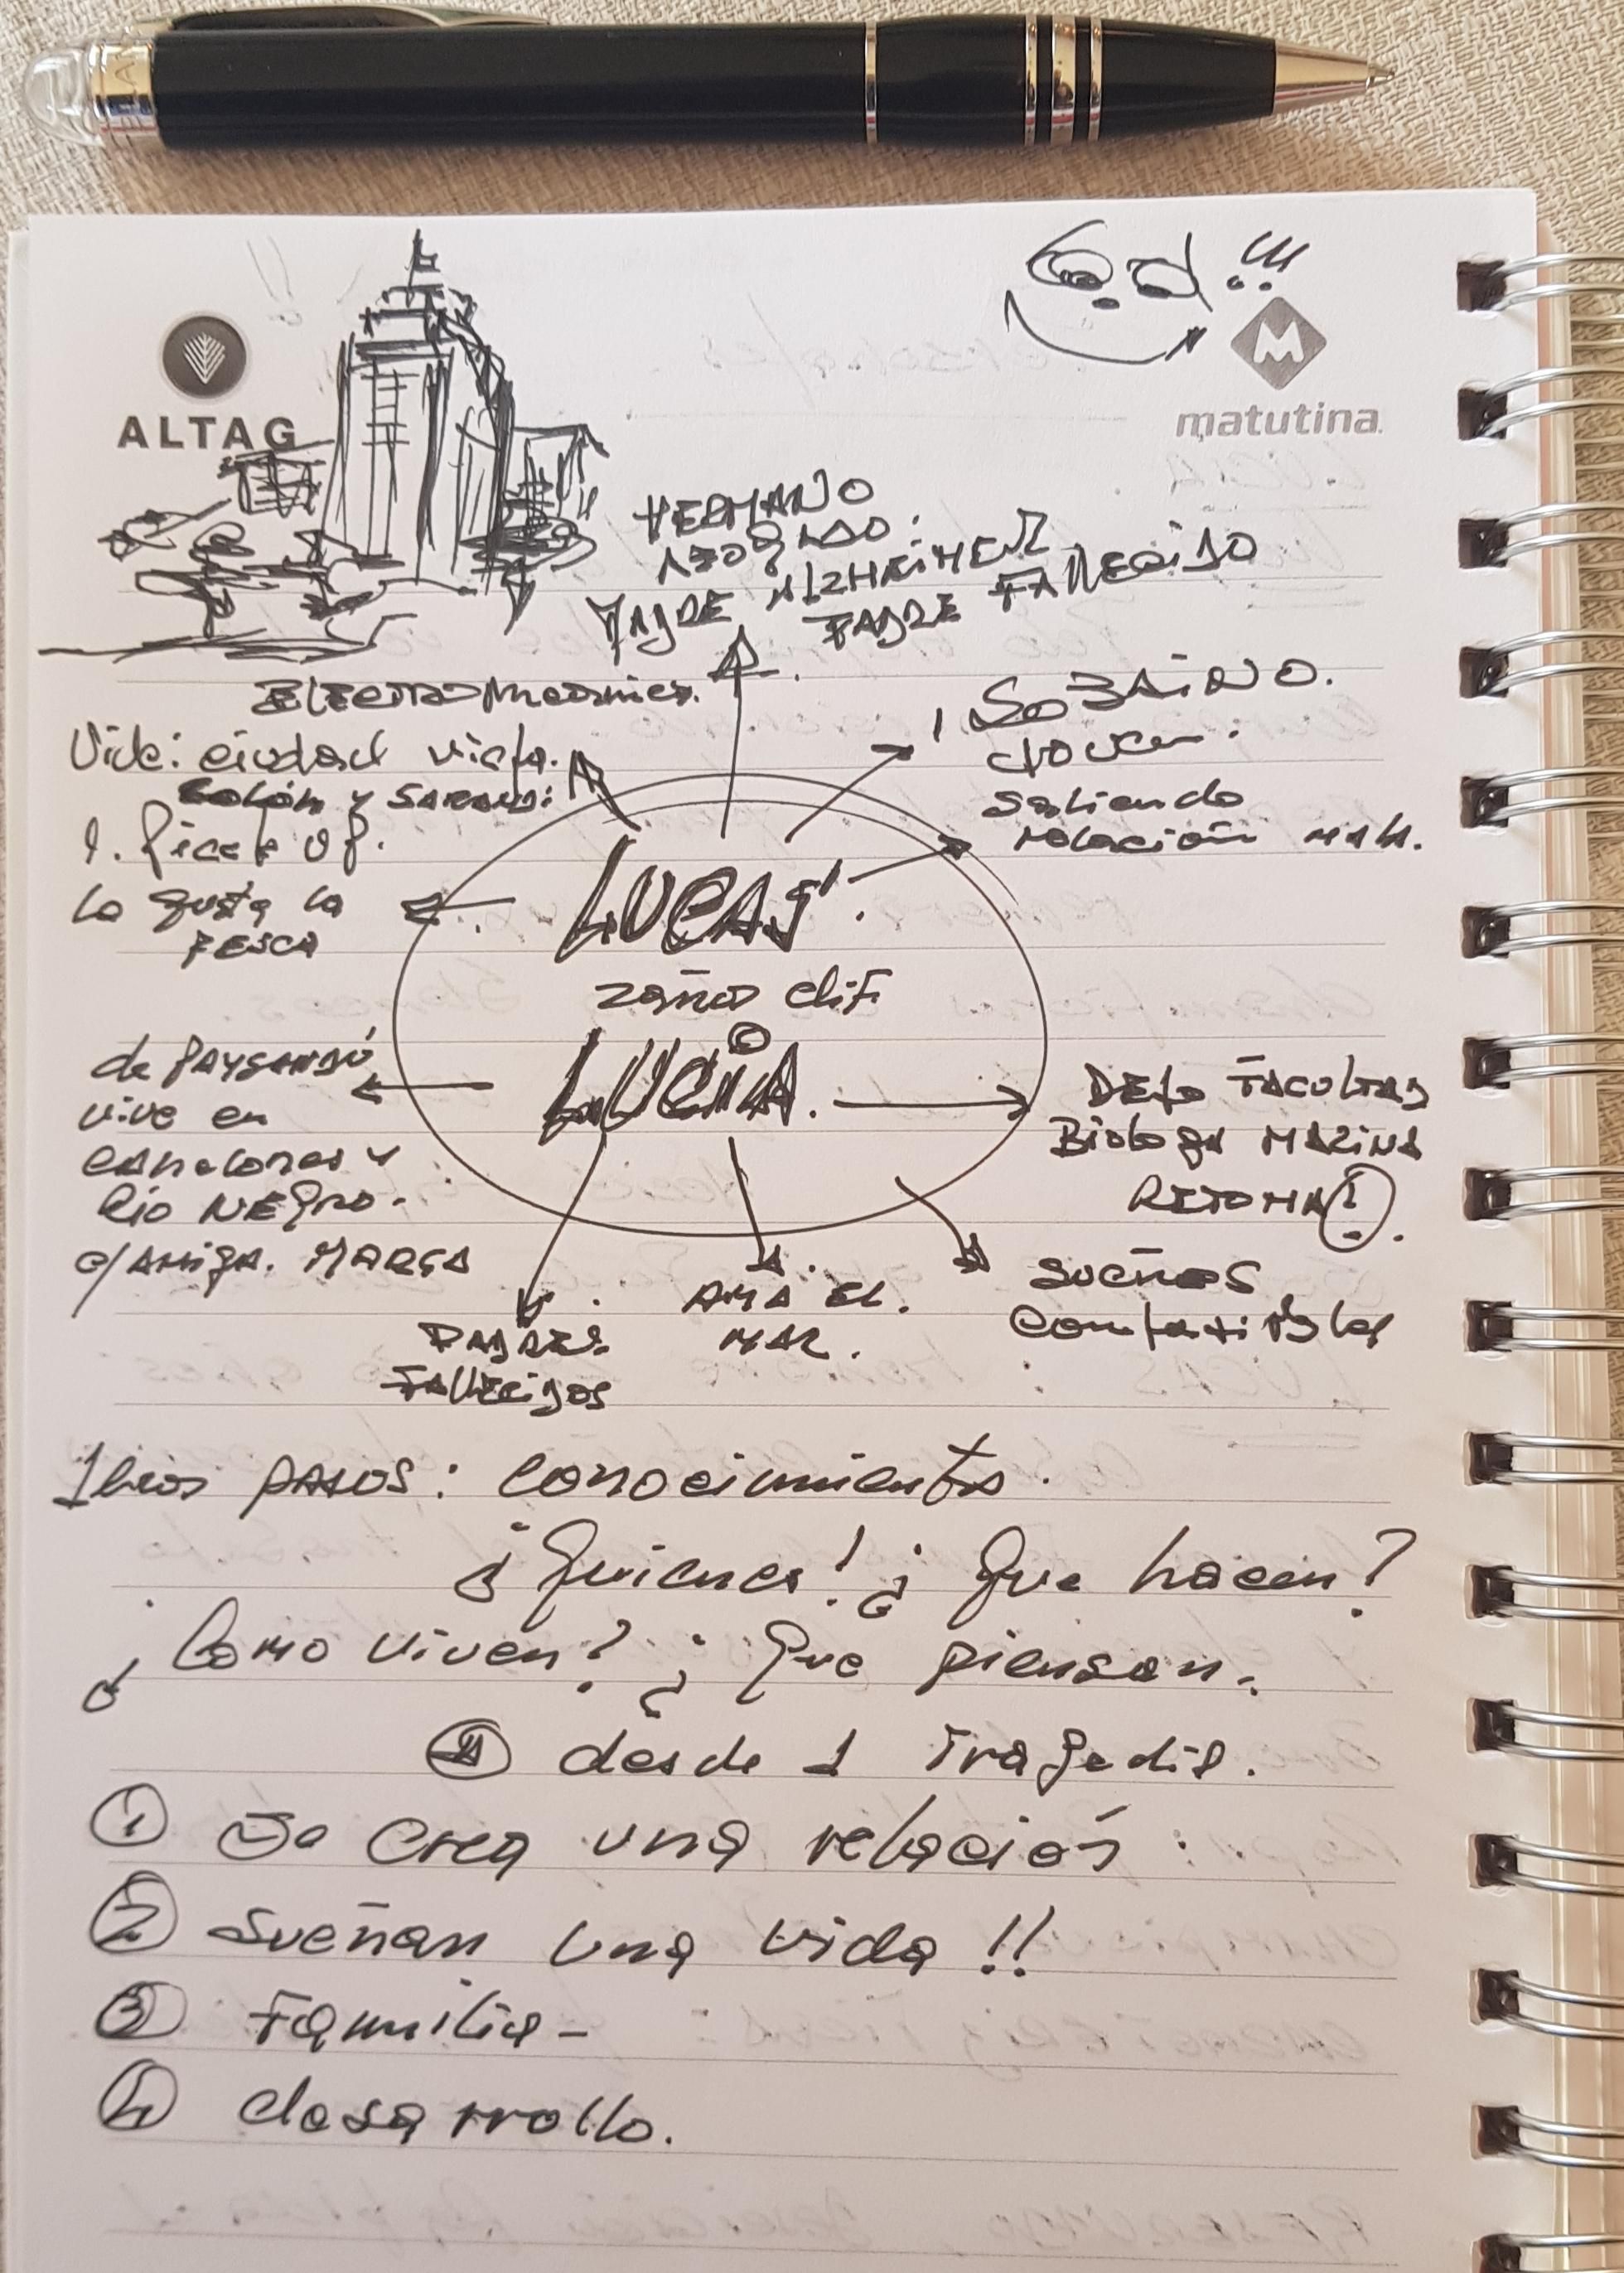 ALTAG
matutina
HERMANO
ABOGADO.
MADRE ALZHEIMER
PADRE FALLECIDO
Vive: ciudad vieja.
Colón y Sarandí
le gusta la
PESCA
SOBRINO.
JOVEN.
Saliendo
relación mala.
LUCAS
2 años dif.
LUCIA.
de PAYSANDÚ
vive en
canelones y
Rio NEGRO.
c/AMIGA. MARGA
DEJO FACULTAD
Biologa MARINA
RETOMA!
PADRES
FALLECIDOS
AMA EL
MAR.
SUEÑOS
Compartibles
pasos: conocimiento.
¿Quienes! ¿Que hacen?
¿Como viven? ¿Que piensan.
desde 1 Tragedia.
1 Se crea una relación:
2 Sueñan una vida!!
3 Familia-
4 desarrollo.